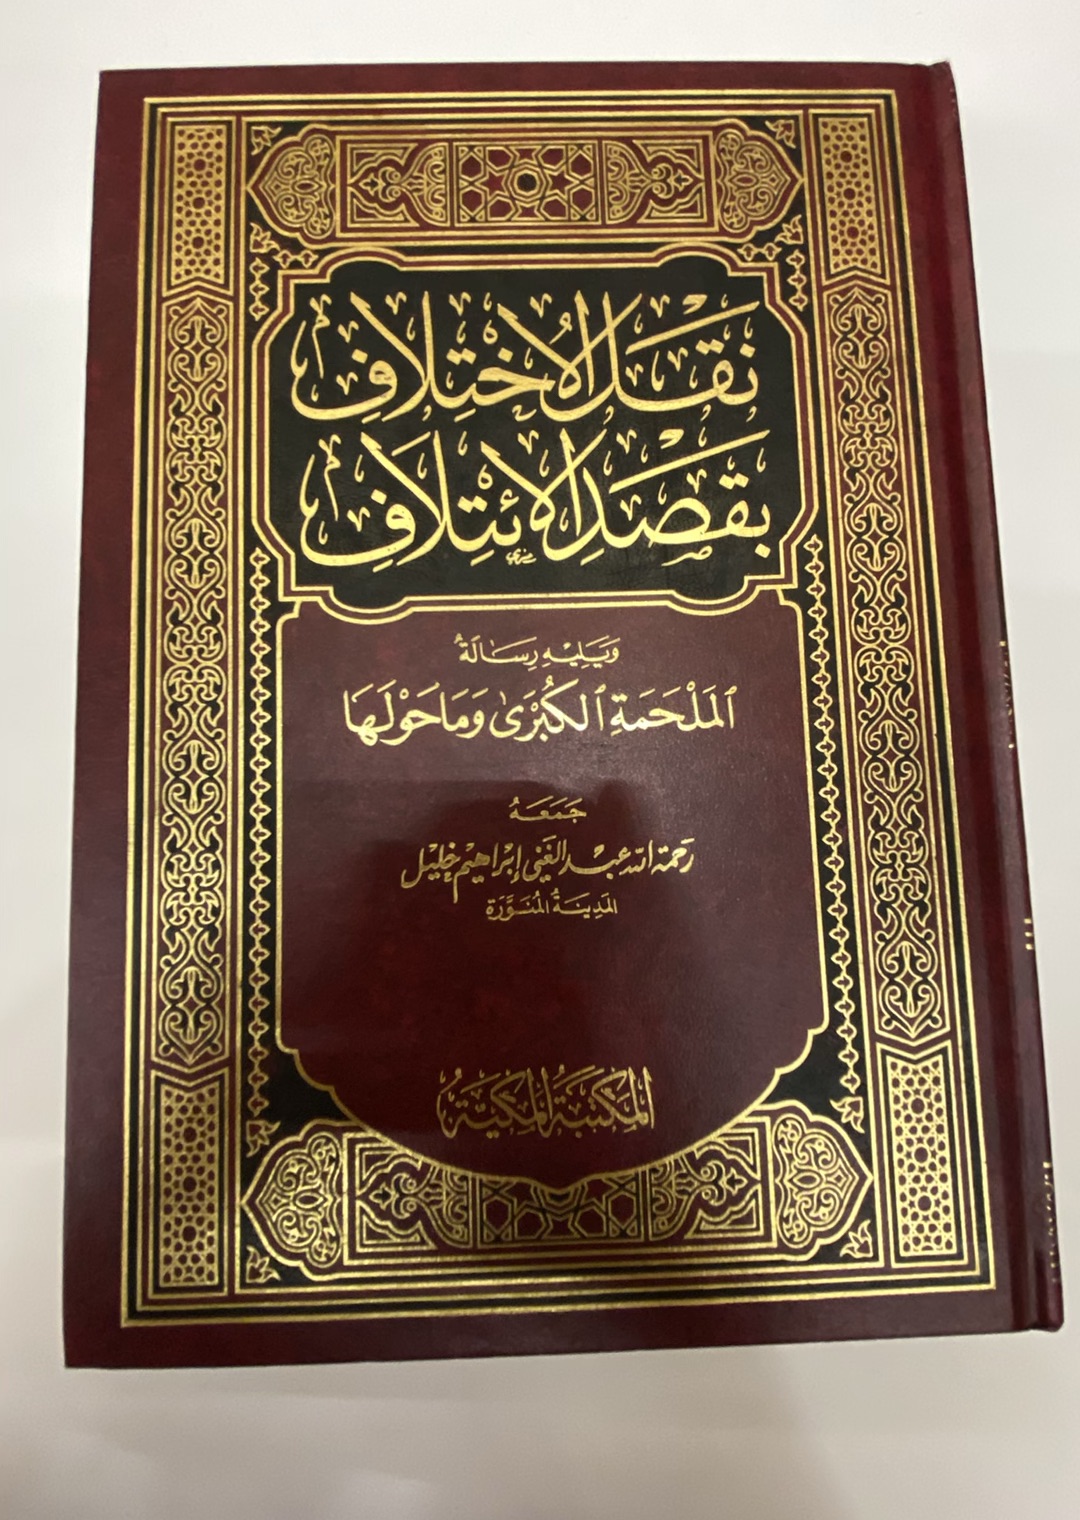 نَقْلُ الِاخْتِلَافِ
بِقَصْدِ الِائْتِلَافِ
وَيَلِيْهِ رِسَالَةُ
ٱلمَلْحَمَةِ ٱلكُبْرَىٰ وَمَا حَوْلَهَا
جَمَعَهُ
رَحمة الله عبد الغني إبراهيم خليل
المَدِينَةُ المُنَوَّرَة
المَكتَبَةُ المَكِّيَّةُ